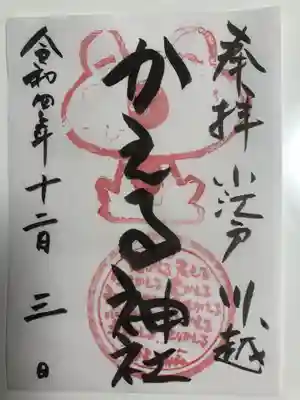 奉拝 小江戸 川越
かえる神社
令和四年十二月三日